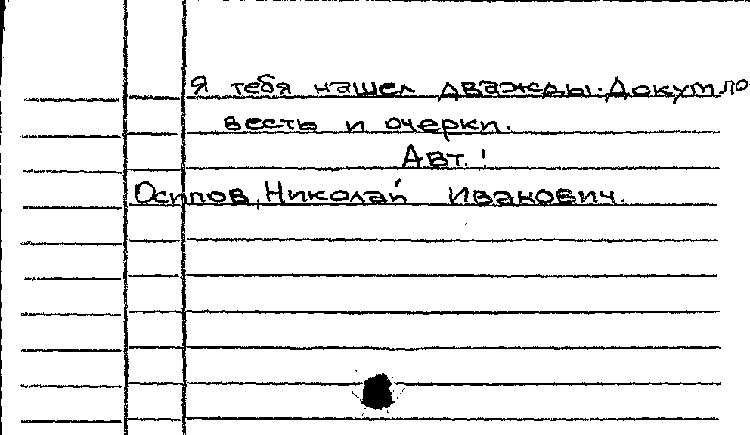 Я тебя нашел дважды. Докум по
весть и очерки.
Авт.!
Осипов, Николай Иванович.